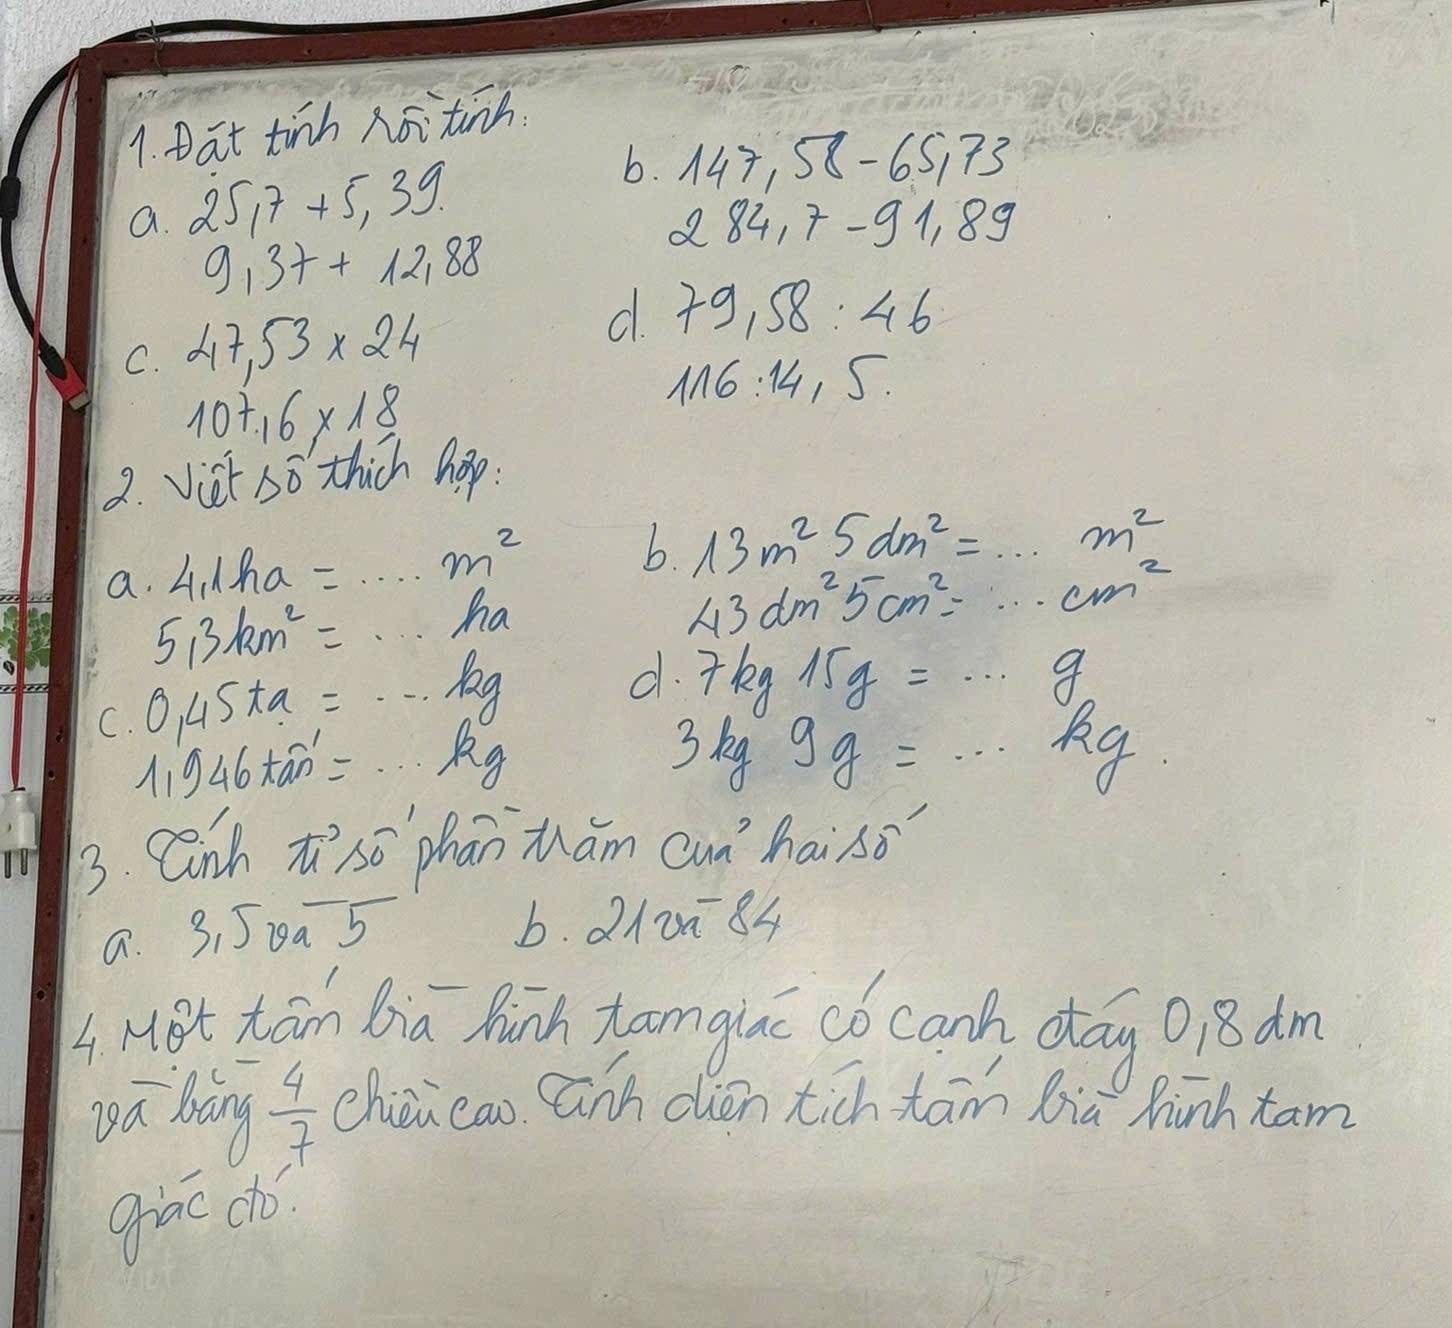 1. Đặt tính rồi tính:
a. 25,7 + 5,39.
9,37 + 12,88
b. 147,58 - 65,73
284,7 - 91,89
c. 47,53 x 24
107,6 x 18
d. 79,58 : 46
116 : 14,5.
2. Viết số thích hợp:
a. 4,1ha = .... m²
5,3km² = ... ha
b. 13m² 5dm² = ... m²
43dm² 5cm² = ... cm²
c. 0,45 tạ = ... kg
1,946 tấn = ... kg
d. 7kg 15g = ... g
3kg 9g = ... kg.
3. Tính tỉ số phần trăm của hai số
a. 3,5 và 5 b. 21 và 84
4. Một tấm bìa hình tam giác có cạnh đáy 0,8dm
và bằng 4/7 chiều cao. Tính diện tích tấm bìa hình tam
giác đó.